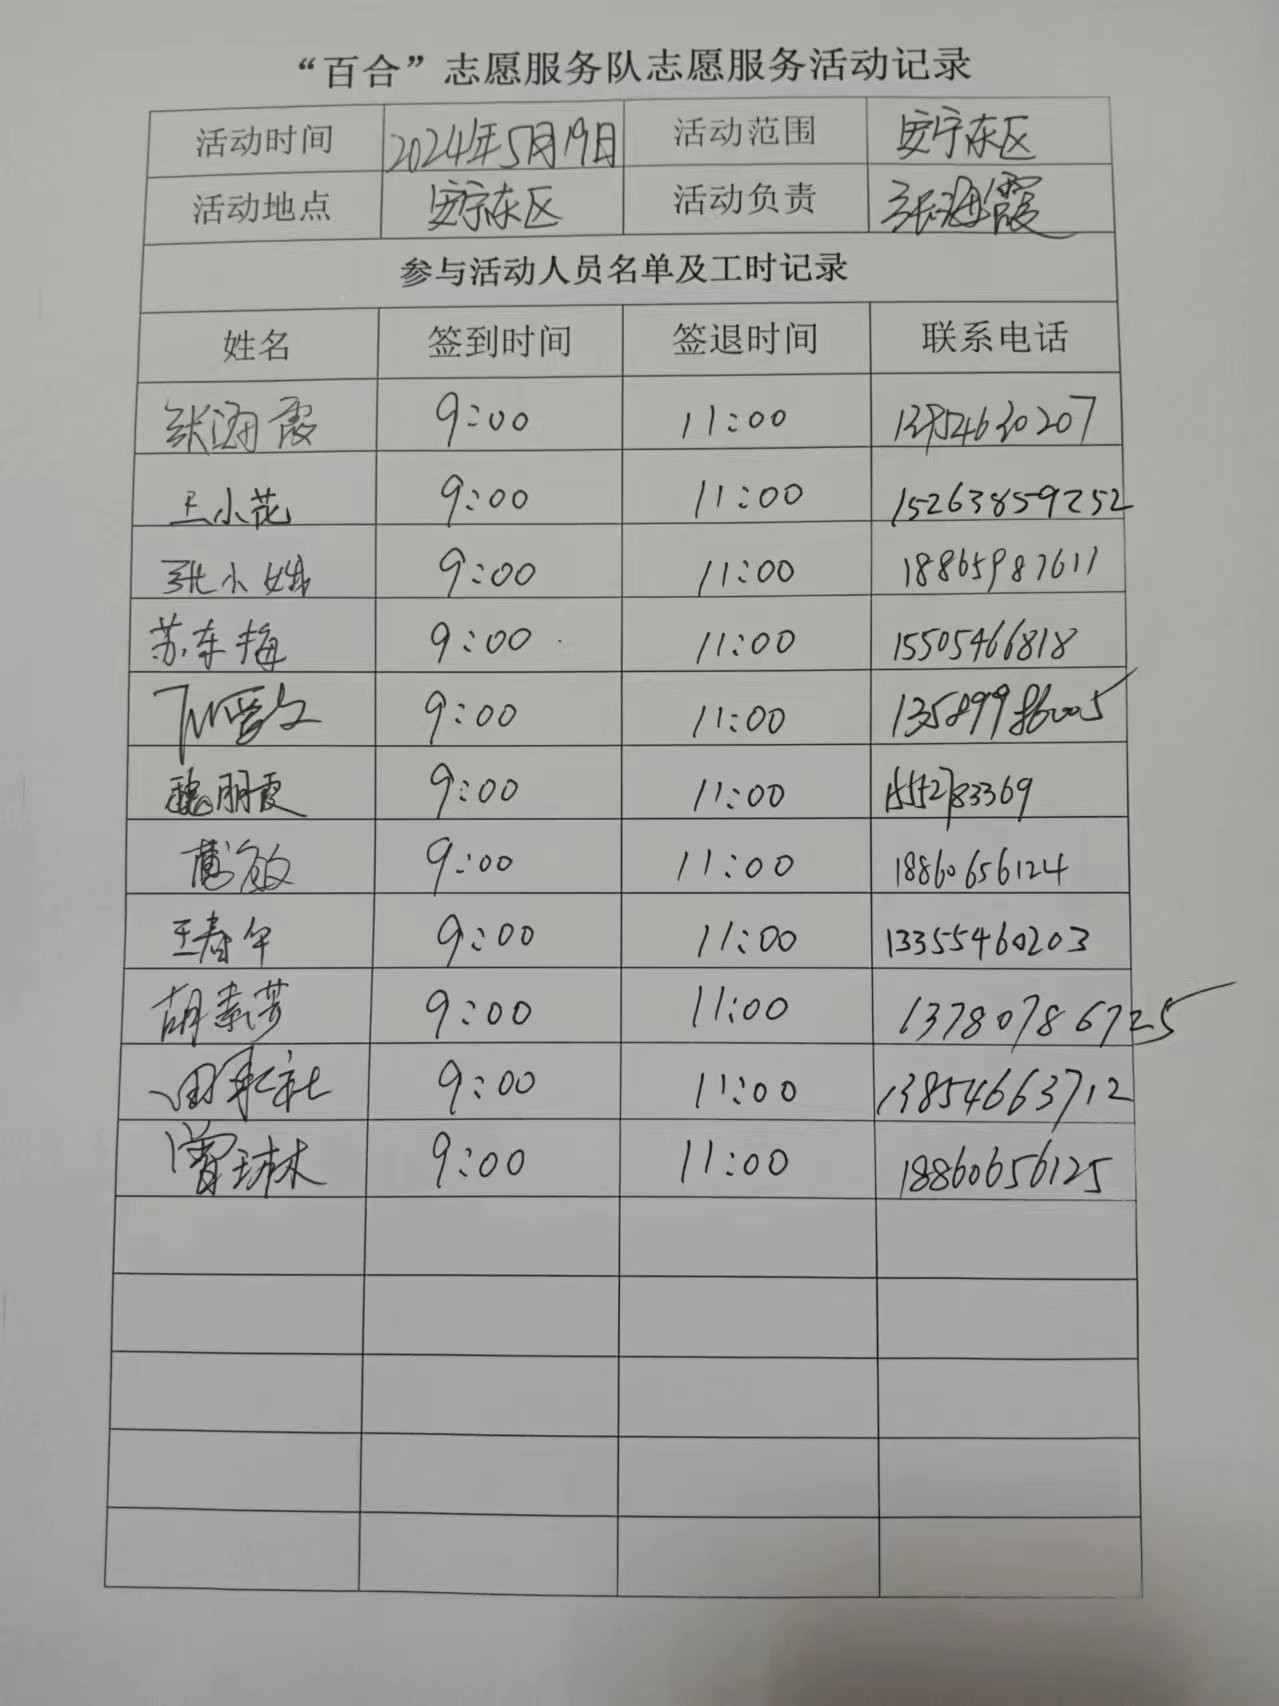 “百合”志愿服务队志愿服务活动记录
活动时间 2024年5月19日 活动范围 安宁东区
活动地点 安宁东区 活动负责 张海霞
参与活动人员名单及工时记录
姓名 签到时间 签退时间 联系电话
张海霞 9:00 11:00
王小花 9:00 11:00 15263859252
张小娥 9:00 11:00 18865987611
苏东梅 9:00 11:00 15505466818
9:00 11:00 13589986005
魏朋霞 9:00 11:00
9:00 11:00 18860656124
王春午 9:00 11:00 13355460203
胡素芳 9:00 11:00 13780786725
田承社 9:00 11:00 13854663712
曾琳 9:00 11:00 18860656125